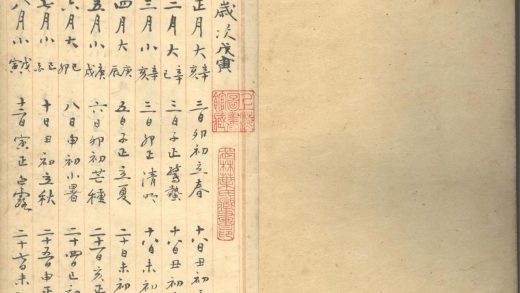 歲次戊寅
正月大 辛亥 三日卯初立春 十八日丑初
二月大 辛巳 三日子正驚蟄 十八日丑初
三月小 辛亥 三日卯正清明 十八日未初
四月大 庚辰 五日子正立夏 二十日未初
五月小 庚戌 六日卯初芒種 二十一日亥正
六月大 己卯 八日申初小暑 二十四日巳初
七月小 己酉 十日丑初立秋 二十五日申正
八月小 戊寅 十一日寅正白露
武林葉氏藏書印